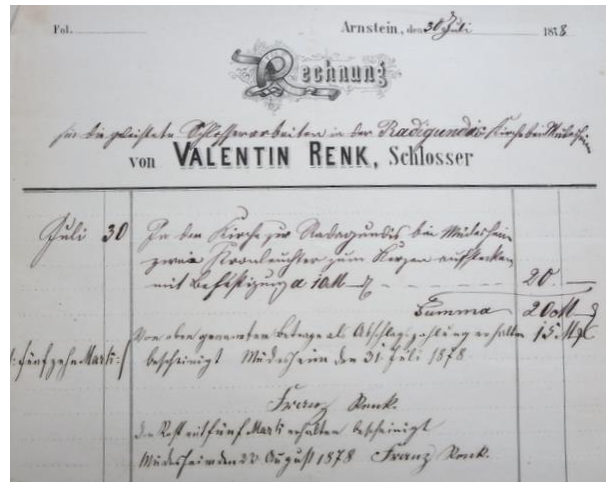 Fol. Arnstein, den 30 Juli 1878
Rechnung
für die geleistete Schlosserarbeiten in der Radigundis Kirche bei Müdesheim
von VALENTIN RENK, Schlosser
Juli 30 In der Kirche zur Radegundis bei Müdesheim
zwei Kronleuchter zum Kerzen aufstecken
mit Befestigung a 10 M 20. —
Summa 20 M
Von oben genannten Betrage als Abschlagszahlung erhalten 15 M
:fünfzehn Mark:/ bescheinigt Müdesheim den 31. Juli 1878.
Franz Renk.
den Rest mit fünf Mark erhalten bescheinigt
Müdesheim den 23. August 1878 Franz Renk.